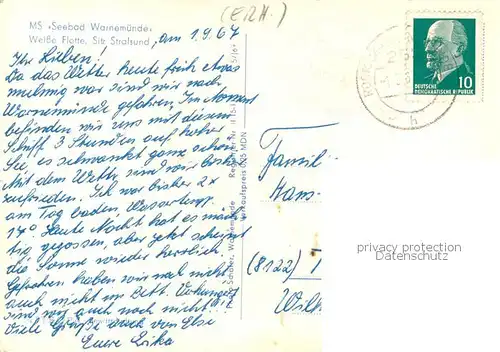 (ERH.)
MS »Seebad Warnemünde«
Weiße Flotte, Sitz Stralsund
, am 1.9.67
Ihr Lieben!
Da das Wetter heute früh etwas
mulmig war sind wir nach
Warnemünde gefahren. Im Moment
befinden wir uns mit diesem
Schiff 3 Stunden auf hoher
See, es schwankt ganz schön.
Mit dem Wetter sind wir bisher
zufrieden. Ich war bisher 2x
am Tag baden, Wassertemp.
17°. Heute Nacht hat es mäch
tig gegossen, aber jetzt scheint
die Sonne wieder herrlich.
Gefahren haben wir noch nicht
auch nicht im Bett.
sind wir auch noch nicht!!
Viele Grüße auch von Else
Eure Erika
Verkaufspreis 0,25 MDN
DEUTSCHE
DEMOKRATISCHE REPUBLIK
10
Famil
Hans-
(8122)
Wil
privacy protection
Datenschutz